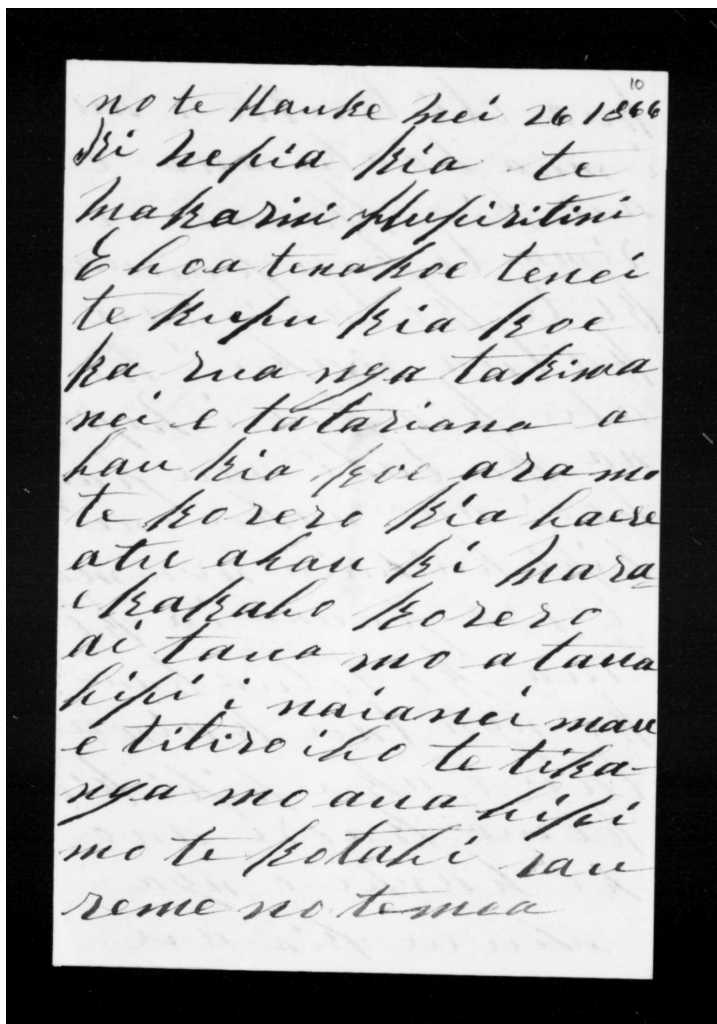 10
no te Hauke Mei 26 1866
Ki Nepia Kia te
Makarini Hupiritini
E hoa tenakoe tenei
te Kupu Kia Koe
Ka rua nga takiwa
nei e tatariana a
hau Kia Koe ara mo
te Korero Kia haere
atu ahau Ki Mara
e Kakaho Korero
ai taua mo a taua
hipi i naianei mau
e titiro iho te tika-
nga mo aua hipi
mo te Kotahi rau
reme no temea